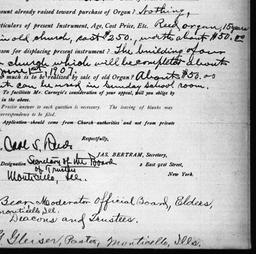 amount already raised toward purchase of Organ? Nothing
Particulars of present Instrument, Age, Cost Price, Etc. Reed organ, 15 years
in old church, cost $250, worth about $50.00
son for displacing present instrument? The building of our
church which will be completed about
June 1907
much is to be realized by sale of old Organ? About $50.00
it can be used in Sunday School room.
To facilitate Mr. Carnegie's consideration of your appeal, will you oblige by
in the above.
Precise answer to each question is necessary. The leaving of blanks may
correspondence to be filed.
Application should come from Church authorities and not from private
Respectfully,
Carl S.
JAS. BERTRAM, Secretary,
Designation Secretary of the Board
of Trustees
2 East 91st Street,
Monticello, Ill.
New York.
Moderator Official Board, Elders,
Monticello Ill.
Deacons and Trustees.
Gleiser, Pastor, Monticello, Ills.